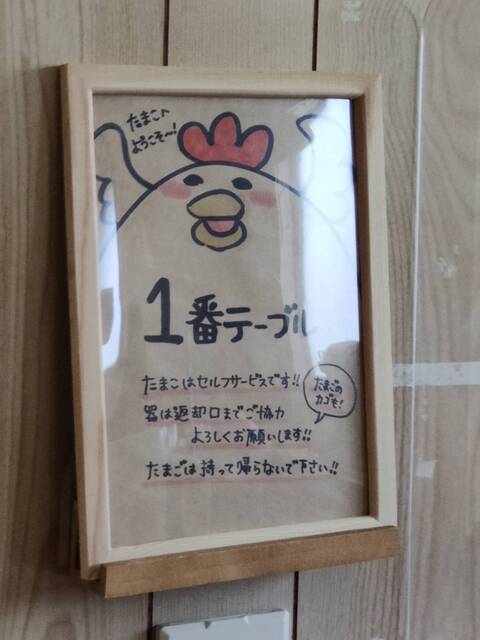 たまこへ
ようこそ〜！
1番テーブル
たまこはセルフサービスです!!
器は返却口までご協力
よろしくお願いします!!
たまごの
カゴモ!
たまごは持って帰らないで下さい!!